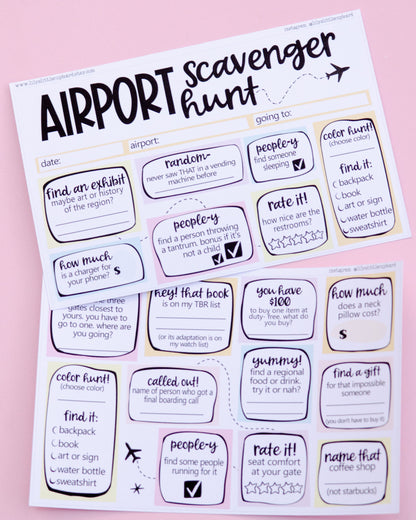 AIRPORT scavenger
hunt
date:
airport:
going to:
find an exhibit
maybe art or history
of the region?
random-
never saw THAT in a vending
machine before
people-y
find someone
sleeping
color hunt!
(choose color)
find it:
backpack
book
art or sign
water bottle
sweatshirt
how much
is a charger for
your phone? $
people-y
find a person throwing
a tantrum, bonus if it's
not a child
rate it!
how nice are the
restrooms?
three
gates closest to
yours, you have to
go to one. where are
you going?
hey! that book
is on my TBR list
(or its adaptation is on
my watch list)
you have
$100
to buy one item at
duty-free, what do
you buy?
how much
does a neck
pillow cost?
$
color hunt!
(choose color)
find it:
backpack
book
art or sign
water bottle
sweatshirt
called out!
name of person who got a
final boarding call
yummy!
find a regional
food or drink.
try it or nah?
find a gift
for that impossible
someone
(you don't have to buy it)
people-y
find some people
running for it
rate it!
seat comfort
at your gate
name that
coffee shop
(not starbucks)